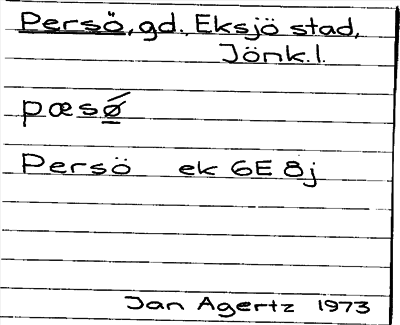 Persö, gd., Eksjö stad,
Jönk.l.
pæsǿ
Persö ek 6E 8j
Jan Agertz 1973